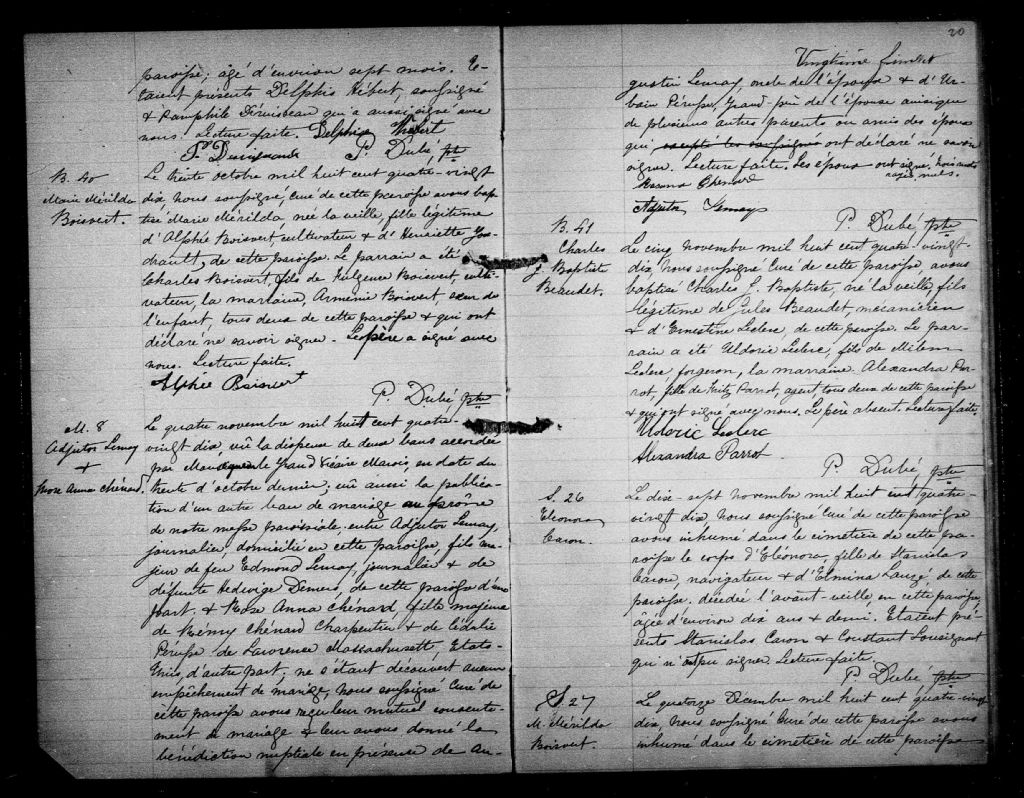 paroisse; âgé d'environ sept mois. E-
taient présents Delphis Hébert, soussigné
& Pamphile qui a aussi signé avec
nous. Lecture faite. Delphis Hebert
P. Dubé ptre
B. 40
Marie Mérilda
Boisvert.
Le trente octobre mil huit cent quatre-vingt
dix, nous soussigné, curé de cette paroisse avons bap-
tisé Marie Mérilda née la veille, fille légitime
d'Alphée Boisvert, cultivateur & d'Henriette
de cette paroisse. Le parrain a été
Charles Boisvert, fils de Fulgence Boisvert, culti-
vateur, la marraine, Arménie Boisvert, sœur de
l'enfant, tous deux de cette paroisse & qui ont
déclaré ne savoir signer. Le père a signé avec
nous. Lecture faite.
Alphée Boisvert
P. Dubé ptre
M. 8
Adjutor Lemay
+
Rose Anna Chénard.
Le quatre novembre mil huit cent quatre-
vingt dix, vû la dispense de deux bans accordée
par le Grand Vicaire Marois, en date du
trente d'octobre dernier; vû aussi la publica-
tion d'un autre banc de mariage au prône
de notre messe paroissiale entre Adjutor Lemay,
journalier, domicilié en cette paroisse, fils ma-
jeur de feu Edmond Lemay, journalier & de
défunte Hedwige Demers, de cette paroisse d'une
part, & Rose Anna Chénard, fille majeure
de Rémy Chénard Charpentier & de Cédalie
Peruse de Lawrence Massachusett, Etats-
Unis, d'autre part; ne s'étant découvert aucun
empêchement de mariage, nous soussigné Curé de
cette paroisse avons reçu leur mutuel consente-
ment de mariage & leur avons donné la
bénédiction nuptiale en présence de Au-
20
Vingtième feuillet
gustin Lemay, oncle de l'époux & d'Ur-
bain Péruse, Grand-père de l'épouse ainsi que
de plusieurs autres parents ou amis des époux
qui excepté les soussignés ont déclaré ne savoir
signer. Lecture faite. Les époux ont signé. trois mots
rayés nuls.
Chenard
Adjutor Lemay
P. Dubé ptre
B. 41
Charles
J. Baptiste
Beaudet.
Le cinq novembre mil huit cent quatre-vingt-
dix, nous soussigné Curé de cette paroisse, avons
baptisé Charles J. Baptiste, né la veille, fils
légitime de Jules Beaudet, mécanicien
& d'Ernestine Leclerc, de cette paroisse. Le par-
rain a été Uldoric Leclerc, fils de
Leclerc forgeron, la marraine Alexandra Par-
rot, fille de Fritz Parrot, agent, tous deux de cette paroisse
& qui ont signé avec nous. Le père absent. Lecture faite.
Uldoric Leclerc
Alexandra Parrot
P. Dubé ptre
S. 26
Eléonore
Caron.
Le dix-sept novembre mil huit cent quatre-
vingt dix, nous soussigné Curé de cette paroisse
avons inhumé dans le cimetière de cette pa-
roisse le corps d'Eléonore, fille de Stanislas
Caron, navigateur & d'Elmina Lauzé, de cette
paroisse. décédée l'avant-veille en cette paroisse,
âgée d'environ dix ans & demi. Etaient pré-
sents Stanislas Caron & Constant Lousignant
qui n'ont pu signer. Lecture faite.
P. Dubé ptre
S. 27
M. Mérilda
Boisvert.
Le quatorze Décembre mil huit cent quatre-vingt
dix, nous soussigné Curé de cette paroisse avons
inhumé dans le cimetière de cette paroisse